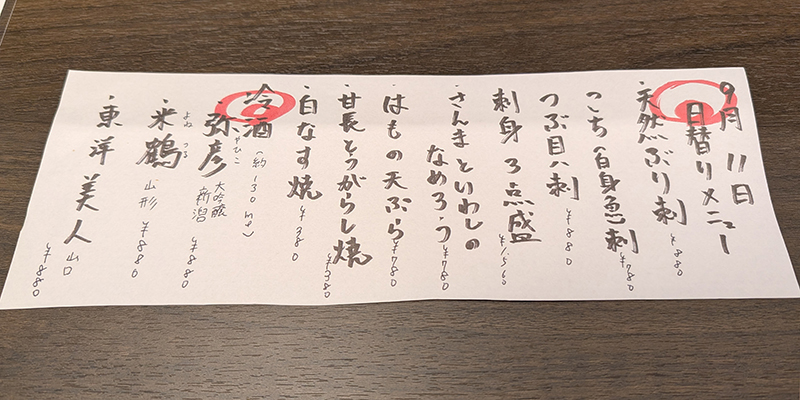 9月11日
日替りメニュー
・天然ぶり刺 ¥880
・こち(白身魚)刺 ¥780
・つぶ貝刺 ¥880
・刺身3点盛 ¥1,560
・さんまといわしの
なめろう ¥780
・はもの天ぷら ¥780
・甘長とうがらし焼 ¥380
・白なす焼 ¥380
冷酒 (約130ml)
・弥彦 やひこ 大吟醸 新潟 ¥880
・米鶴 よねつる 山形 ¥880
・東洋美人 山口 ¥880